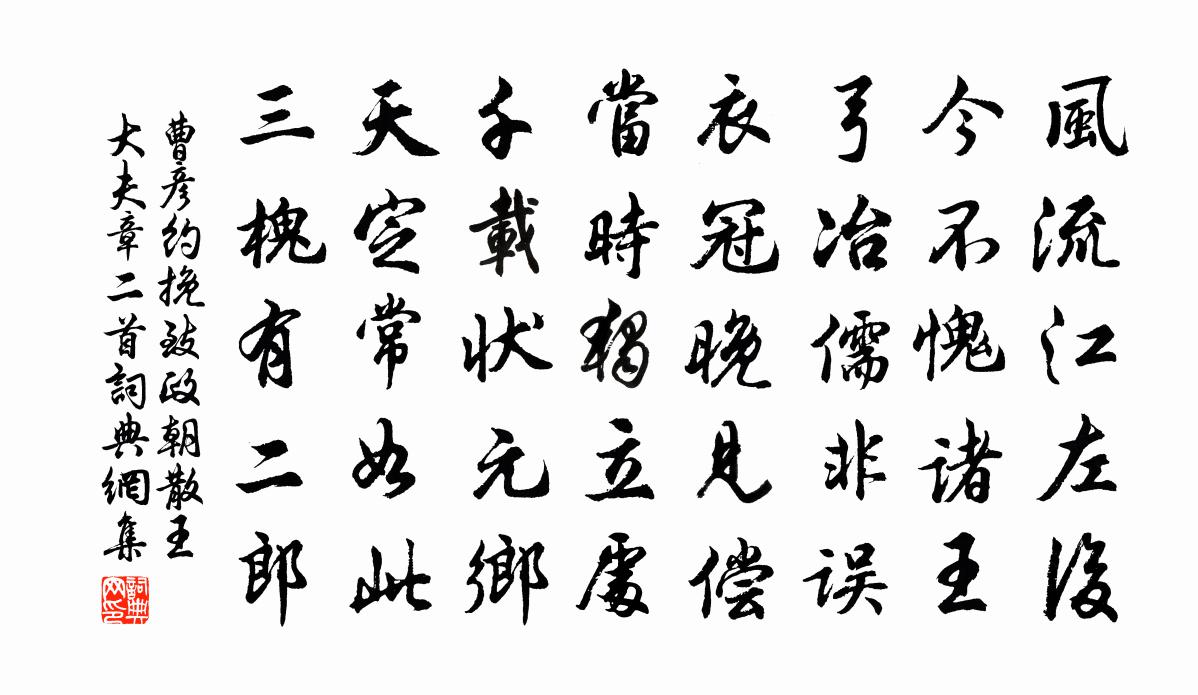 風流江左後
今不愧諸王
弓冶儒非誤
衣冠晚見偿
當時獨立處
千載狀元鄉
天定常如此
三槐有二郎
曹彦約挽致政朝散王
大夫章二首詞典網集